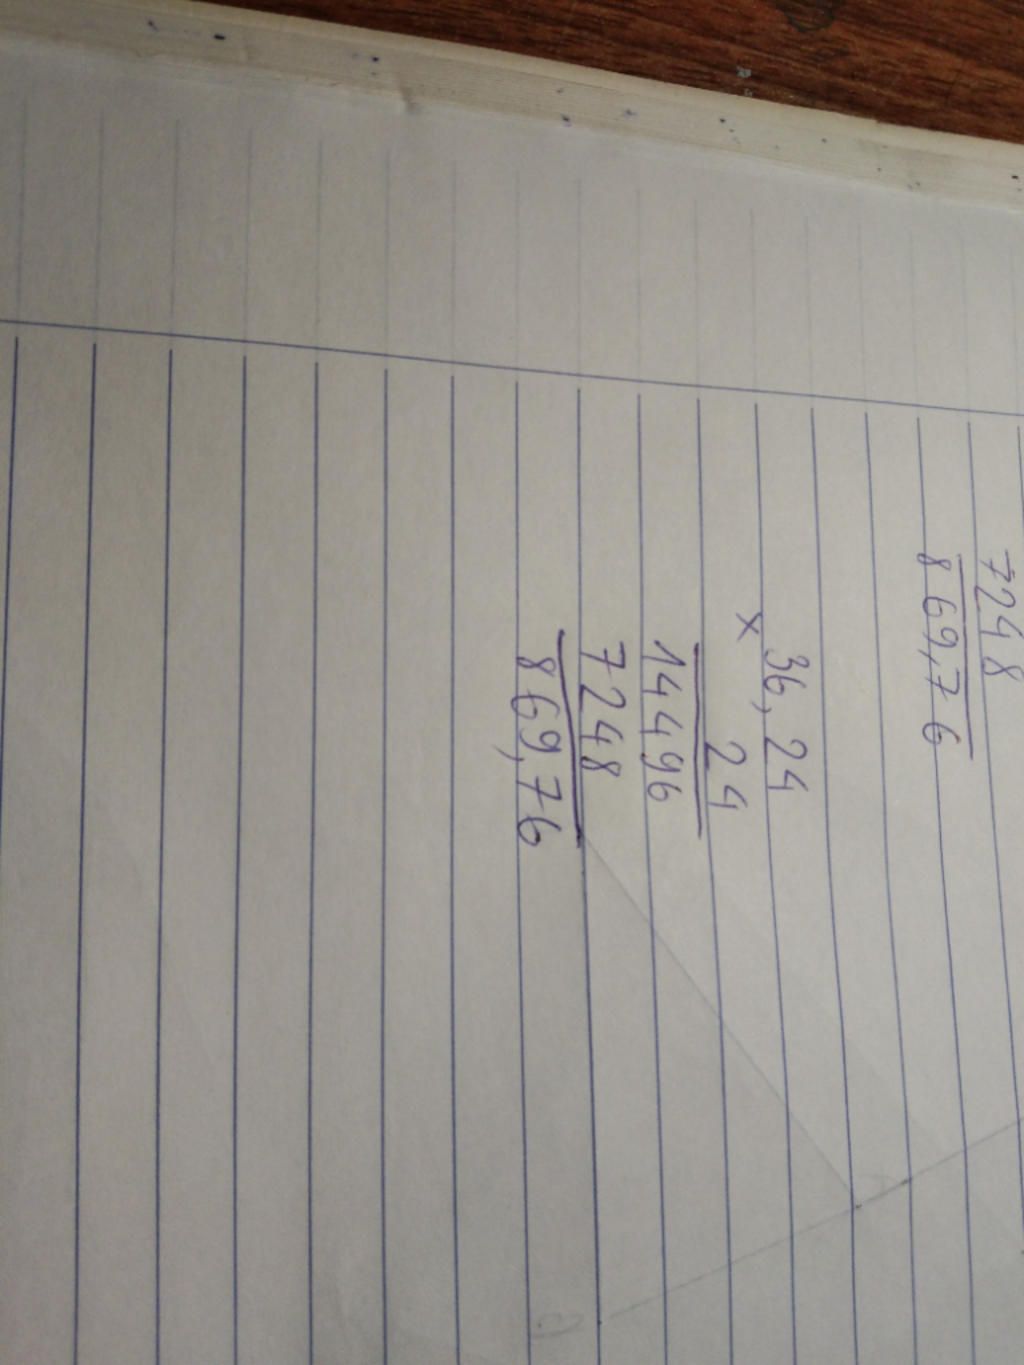 7248
869,76
36,24
× 24
14496
7248
869,76